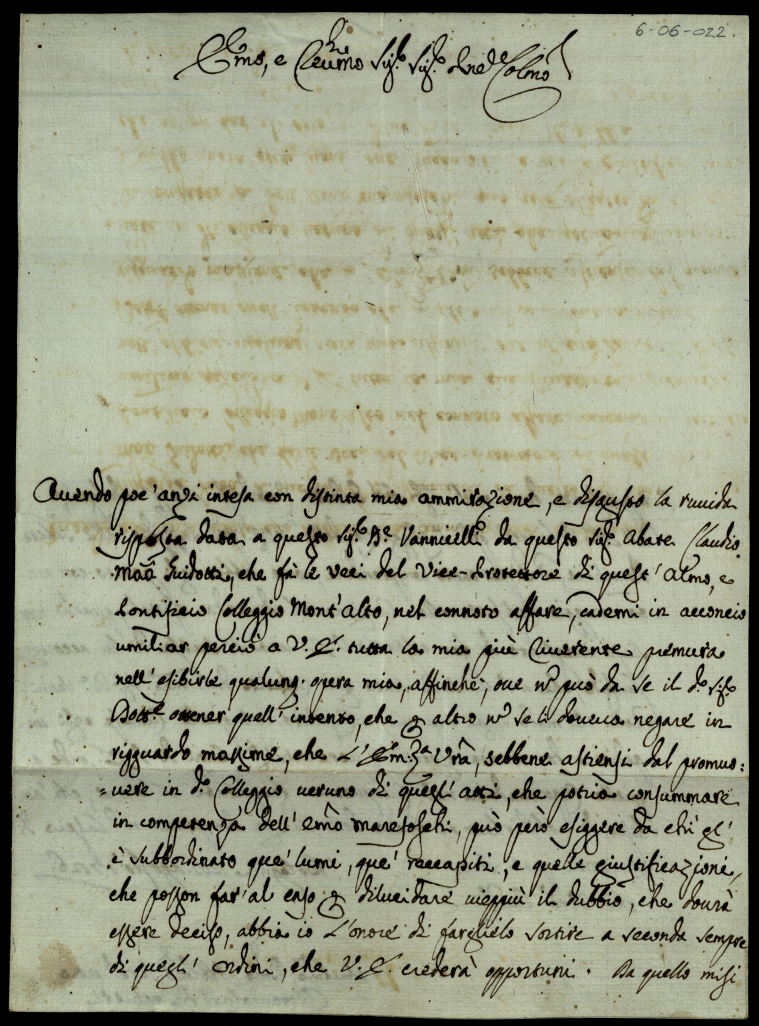 6-06-022.
Emo, e Rẽumo Sig.e Sig.e Pne Colmo
Auendo poc'anzi intesa con distinta mia ammirazione, e disgusto la ruuida
risposta data a questo Sig.e D.r Vannicelli da questo Sig.e Abate Claudio
Maa Guidotti, che fà le veci del Vice-Protettore di quest' Almo, e
Pontificio Colleggio Mont'Alto, nel connoto affare, cademi in acconcio
umiliar perciò a V. E. tutta la mia più riuerente premura
nell'esibirle qualunq. opera mia, affinche, oue nō può da se il d.o Sig.e
Dott.e ottener quell' intento, che altro nō se li doueua negare in
rigguardo massime, che l'Em.za Vrā, sebbene astiensi dal promuo:
=uere in d.o Colleggio veruno di quegl' atti, che potria consummare
in competenza dell' Emō Marefoschi, può però esiggere da chi gl'
è subbordinato que' lumi, que' reccapiti, e quelle giustificazioni,
che posson far' al caso dilucidare vieppiù il dubbio, che dourà
essere deciso, abbia io l'onore di farglielo sortire a seconda sempre
di quegl' ordini, che V. E. crederà opportuni. Da quello misi